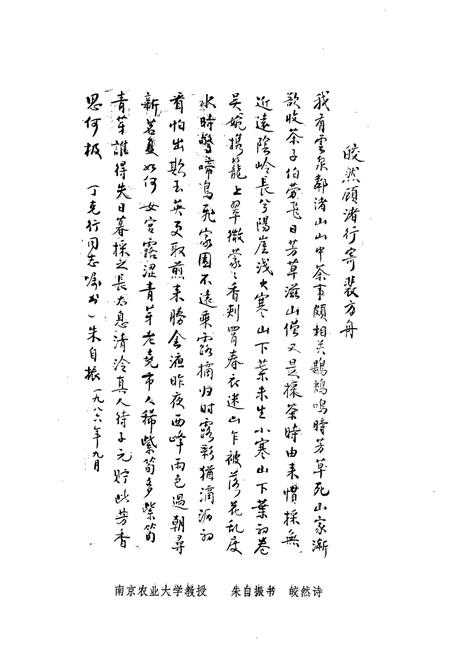 皎然顾渚行寄裴方舟
我有雲泉鄰渚山山中茶事頗相关鶗鴂鳴時芳草死山家漸
欲收茶子伯劳飞日芳草滋山僧又是採茶時由来慣採無
近遠陰岭長兮陽崖浅大寒山下葉未生小寒山下葉初卷
吴婉携籠上翠微蒙〻香刺罥春衣迷山乍被落花乱度
水時驚啼鳥飛家園不遠乘露摘归时露彩猶滴沥初
看怕出欺玉英更取煎来勝金液昨夜西峰雨色過朝尋
新茗复如何女宫露澀青芽老堯市人稀紫筍多紫筍
青芽誰得失日暮採之長太息清泠真人待子元贮此芳香
思何极 丁克行同志嘱书 朱自振一九八六年九月
南京农业大学教授 朱自振书 皎然诗